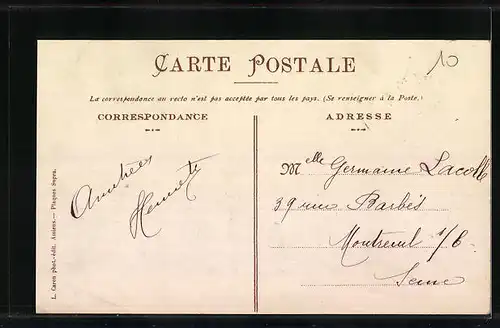 CARTE POSTALE
10
La correspondance au recto n'est pas acceptée par tous les pays. (Se renseigner à la Poste.)
CORRESPONDANCE
Amitiés
Henriette
L. Caron phot.-édit. Amiens.— Plaques Supra.
ADRESSE
Melle Germaine
39 rue Barbès
Montreuil s/B
Seine